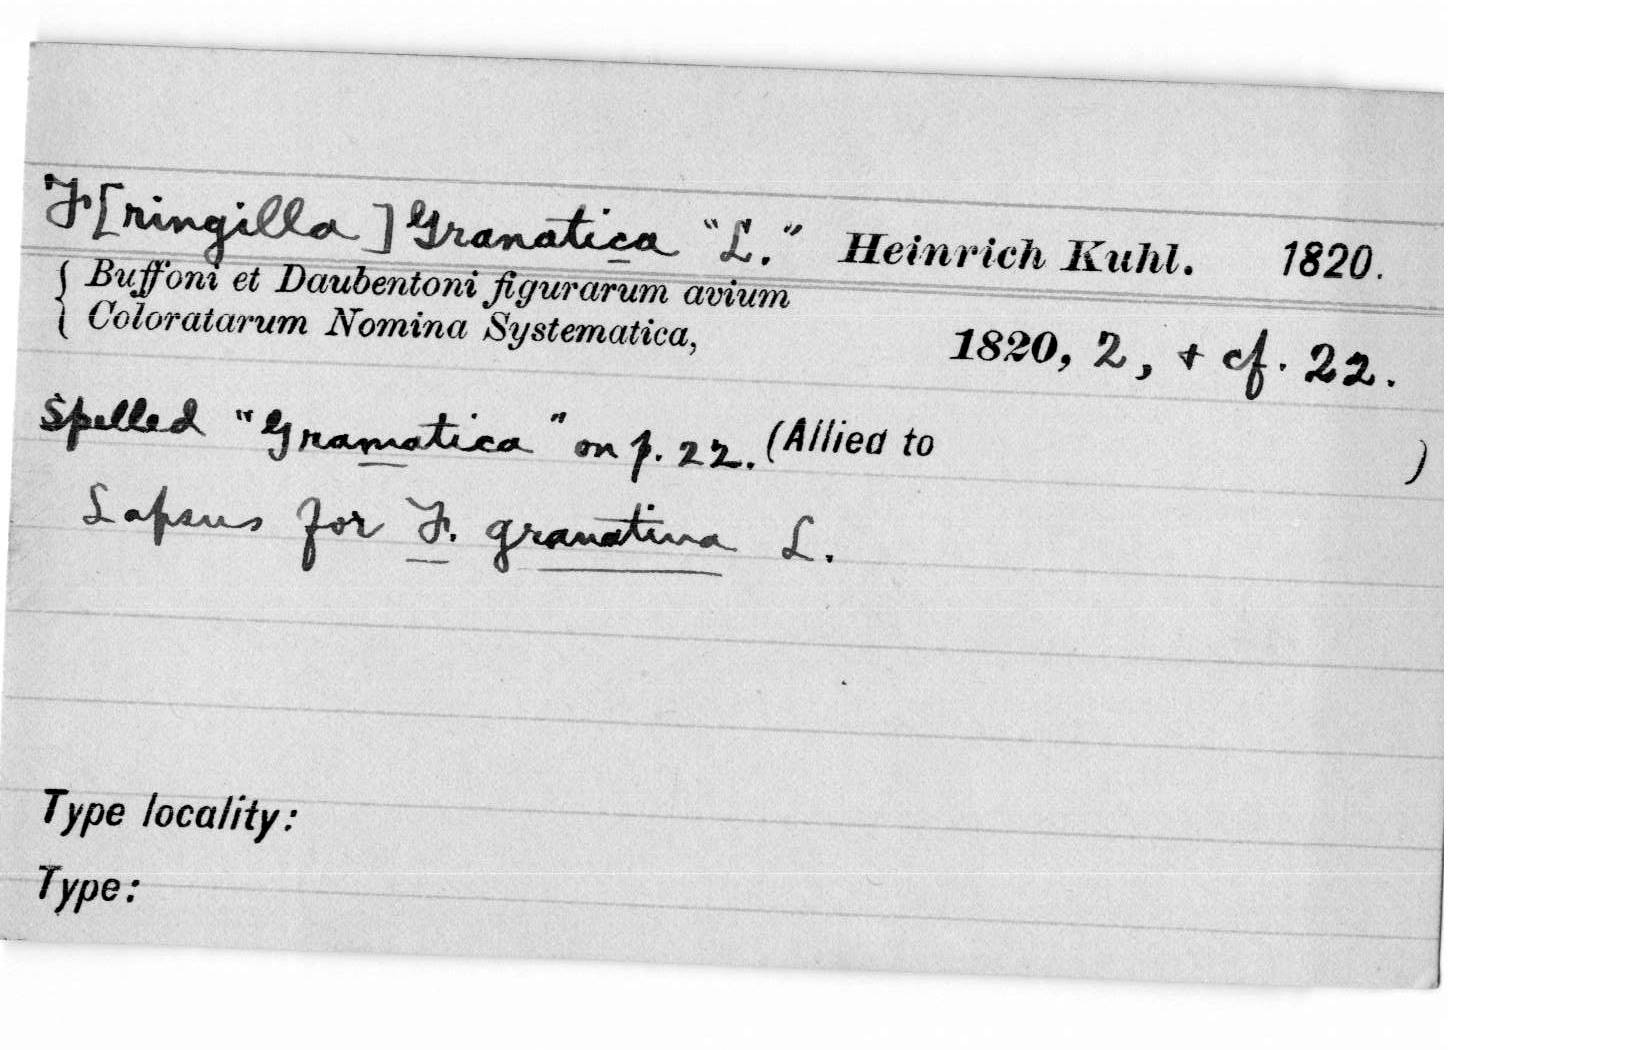 F[ringilla] Granatica "L." Heinrich Kuhl. 1820.
{ Buffoni et Daubentoni figurarum avium
{ Coloratarum Nomina Systematica, 1820, 2, + cf. 22.
Spelled "Gramatica" on p. 22. (Allied to )
Lapsus for F. granatina L.
Type locality:
Type: